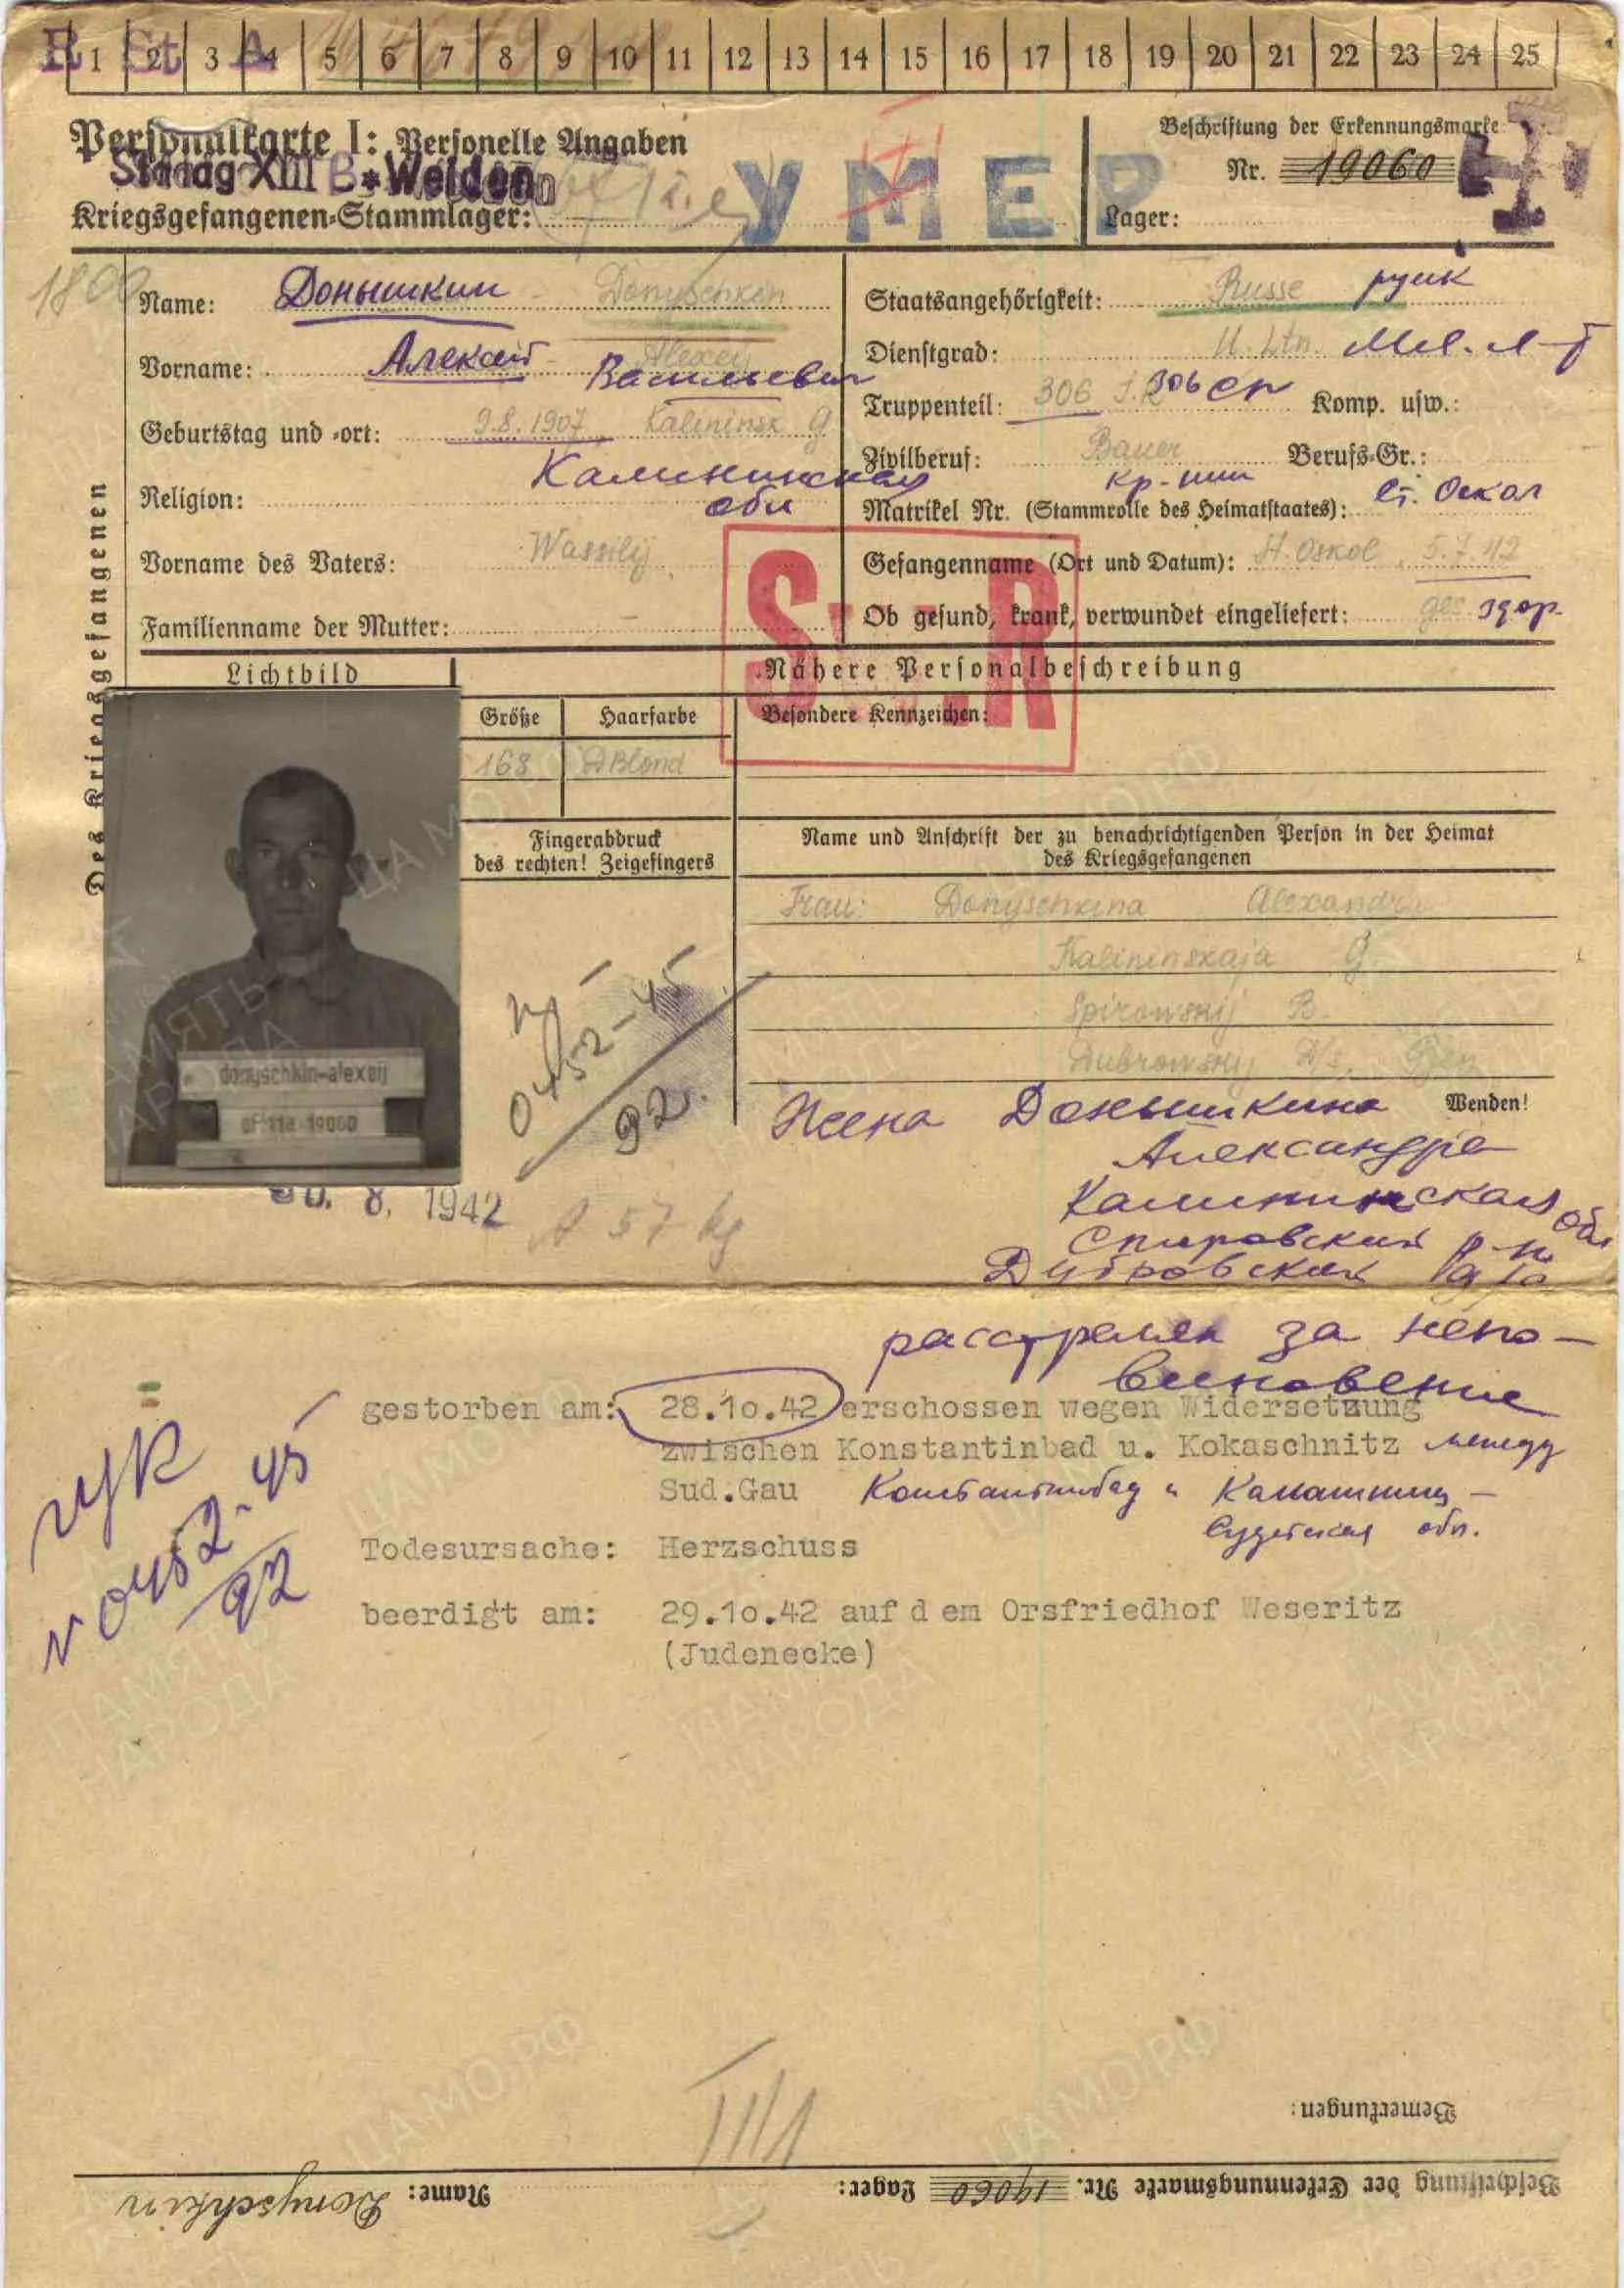 R St A
1 2 3 4 5 6 7 8 9 10 11 12 13 14 15 16 17 18 19 20 21 22 23 24 25
Personalkarte I: Personelle Angaben
Beschriftung der Erkennungsmarke
Stalag XIII B * Weiden
УМЕР
Nr. 19060
Kriegsgefangenen-Stammlager:
Lager:
Des Kriegsgefangenen
Name: Донышкин Donyschkin
Staatsangehörigkeit: Russe русск
Vorname: Алексей Alexey Васильевич
Dienstgrad: U. Ltn. Мл. л-т
Truppenteil: 306 J.R 306 сп Komp. usw.:
Geburtstag und -ort: 9.8.1907 Kalininsk G
Zivilberuf: Bauer Berufs-Gr.:
Калининская
обл
кр-нин
Religion:
Matrikel Nr. (Stammrolle des Heimatstaates): Ст. Оскол
Vorname des Vaters: Wassilij
Gefangenname (Ort und Datum): St. Oskol 5.7.42
Familienname der Mutter: –
Ob gesund, krank, verwundet eingeliefert: ges здор.
Lichtbild
Nähere Personalbeschreibung
Größe Haarfarbe Besondere Kennzeichen:
168 DBlond
Fingerabdruck
des rechten! Zeigefingers
Name und Anschrift der zu benachrichtigenden Person in der Heimat
des Kriegsgefangenen
Frau: Donyschkina Alexandra
Kalininskaja G.
Spirowskij B.
Dubrowskij D/s.
0452-45
92
donyschkin-alexeij
offlla 19060
Wenden!
Жена Донышкина
Александра
Калининская обл
Спировский р-н
Дубровский
8. 1942
57 kg
расстрелян за непо-
виновение
gestorben am: 28.10.42 erschossen wegen Widersetzung
zwischen Konstantinbad u. Kokaschnitz между
Sud.Gau Константинбад и Какашниц –
Судетская обл.
Todesursache: Herzschuss
beerdigt am: 29.10.42 auf d em Orsfriedhof Weseritz
(Judenecke)
0452-45
92
Bemerkungen:
Beschriftung der Erkennungsmarke Nr. 19060 Lager:
Name: Donyschkin
ПАМЯТЬ
НАРОДА
ЦАМО.РФ